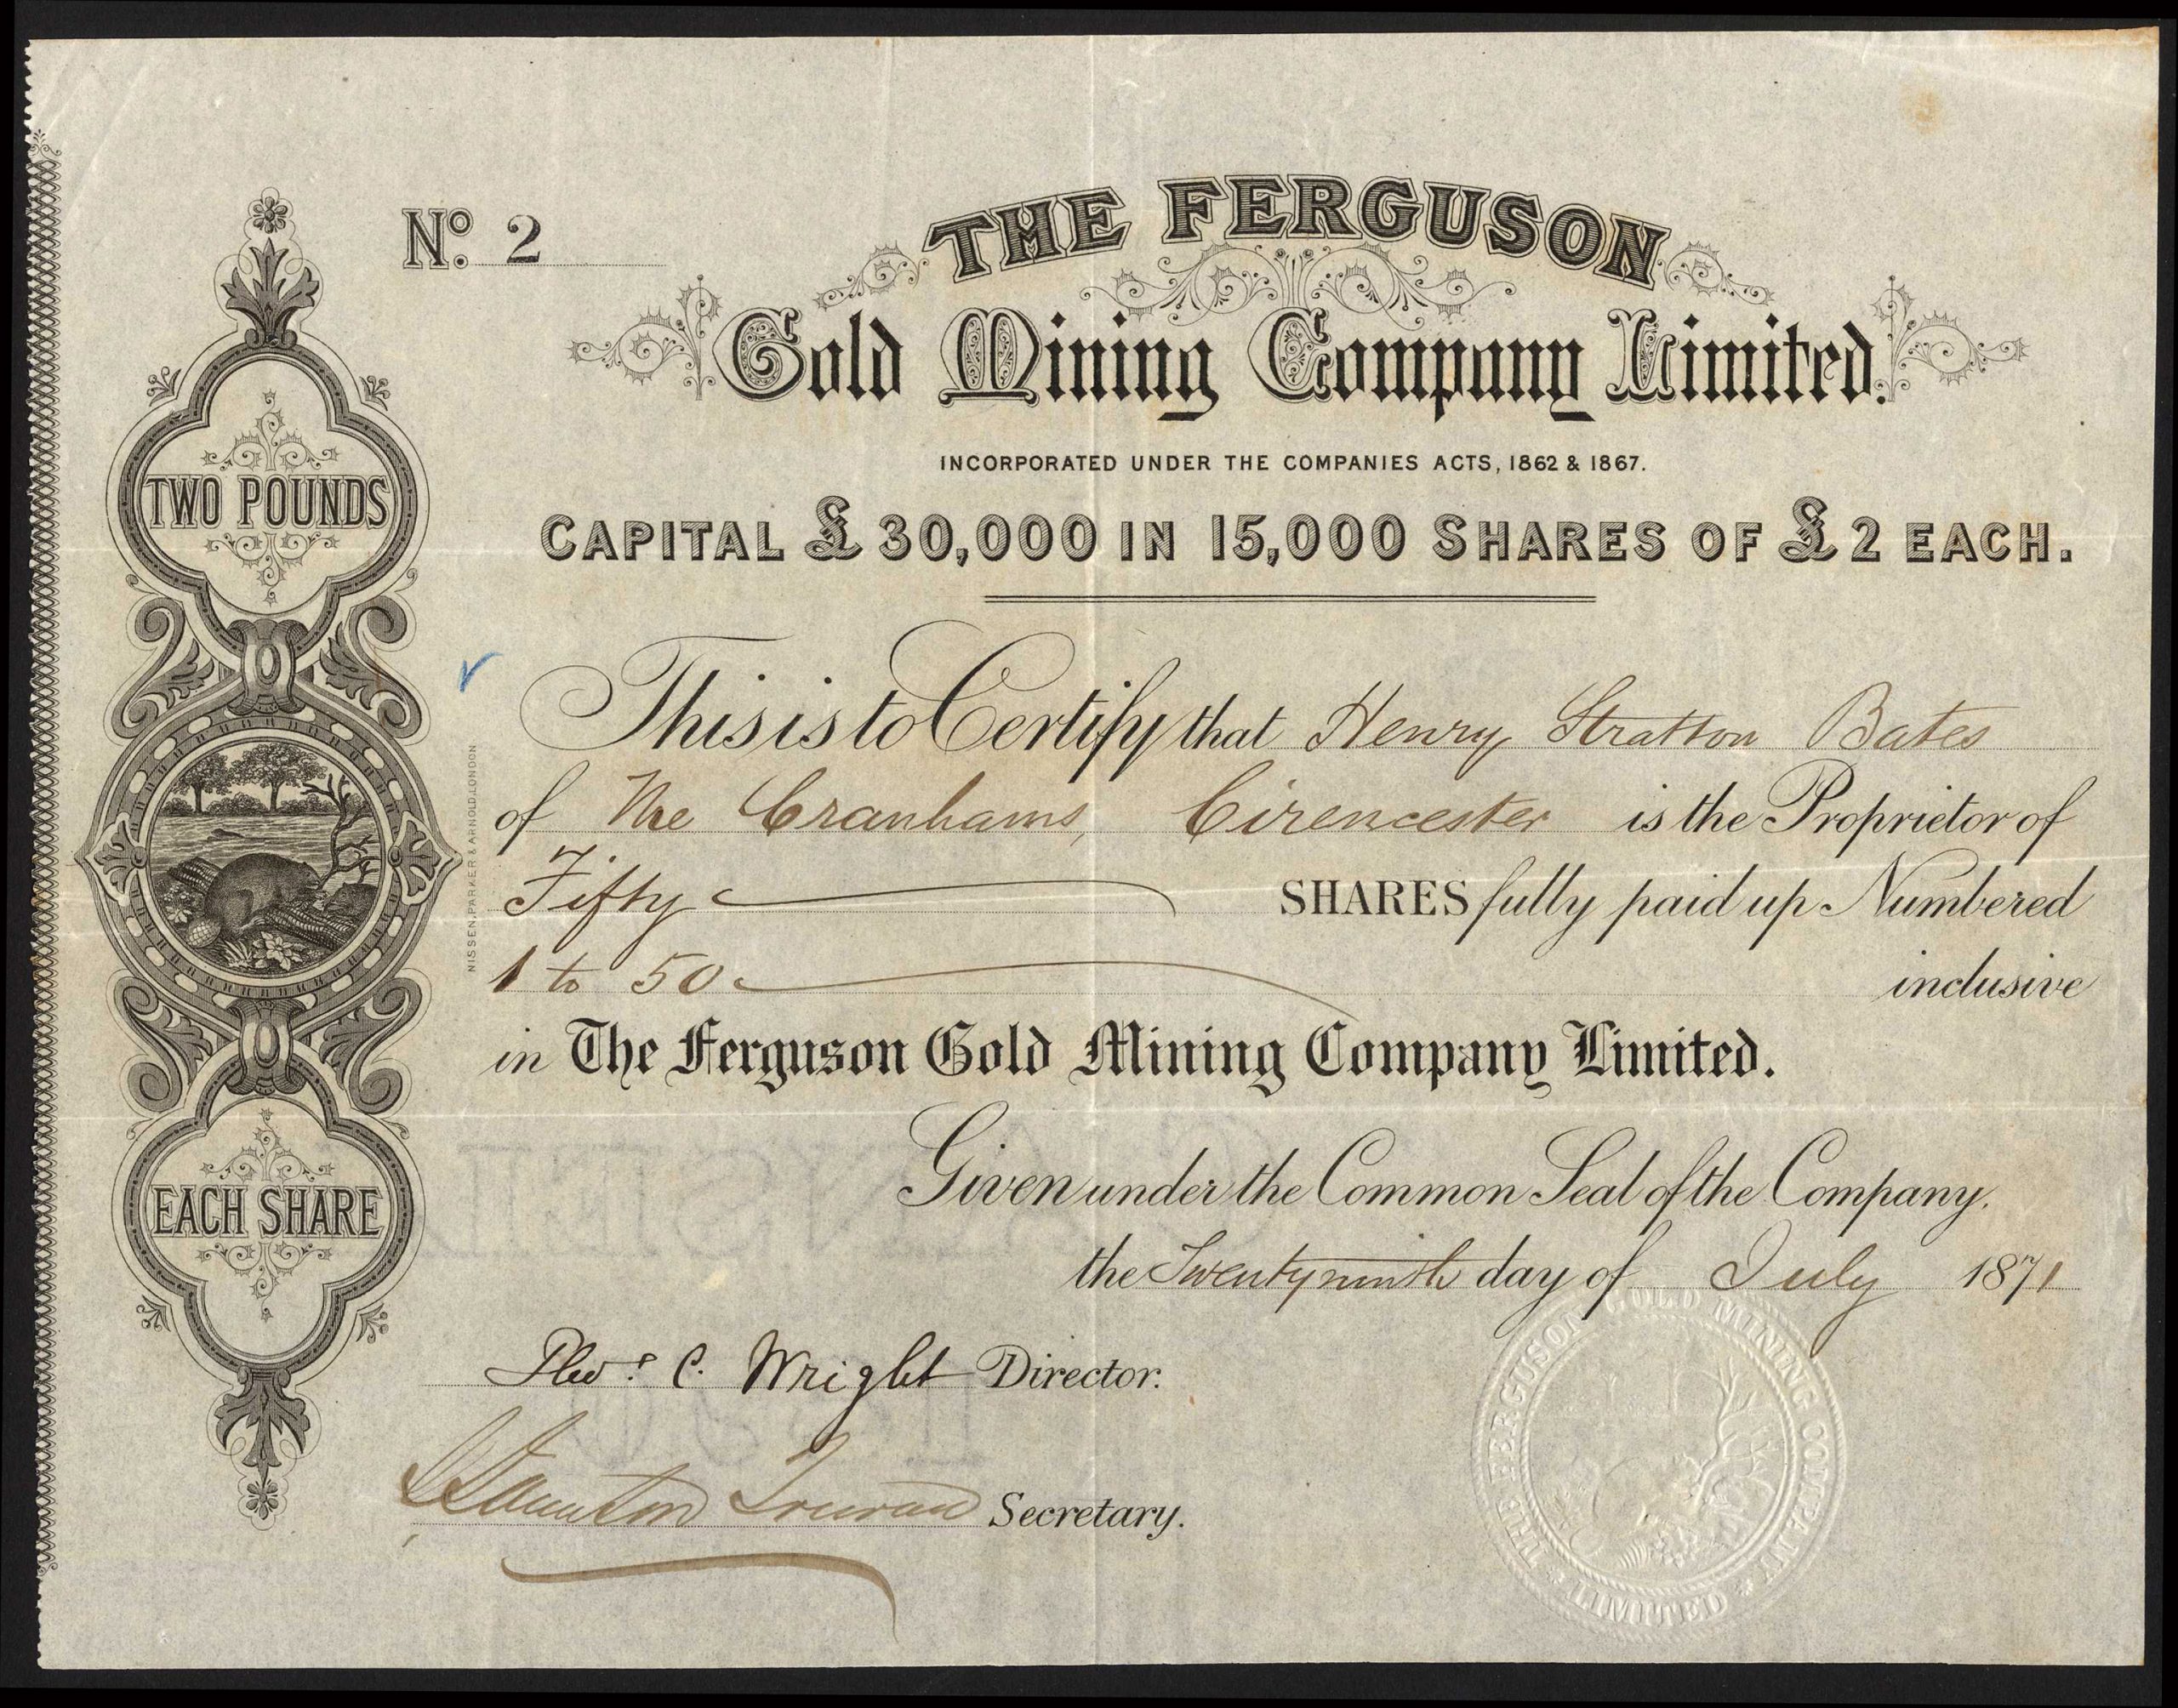 No. 2
THE FERGUSON
Gold Mining Company Limited.
INCORPORATED UNDER THE COMPANIES ACTS, 1862 & 1867.
CAPITAL £30,000 IN 15,000 SHARES OF £2 EACH.
TWO POUNDS
EACH SHARE
NISSEN, PARKER & ARNOLD, LONDON
This is to Certify that Henry Stratton Bates
of The Cranhams, Cirencester is the Proprietor of
Fifty SHARES fully paid up Numbered
1 to 50 inclusive
in The Ferguson Gold Mining Company Limited.
Given under the Common Seal of the Company.
the Twentyninth day of July 1871
C. Wright Director.
Secretary.
THE FERGUSON GOLD MINING COMPANY
* LIMITED *